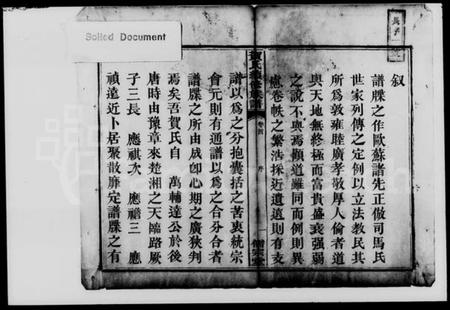 Soiled Document
叙
譜牒之作歐蘇諸先正倣司馬氏
世家列傳之定例以立法教民其
所爲敦雍睦廣孝敬厚人倫者道
與天地無終極而富貴盛衰强弱
之說不與焉顧道雖同而例則異
慮卷帙之繁浩採近遺遠則有支
賀氏 修族譜
卷首
序
一
譜以爲之分抱囊括之苦衷統宗
會元則有通譜以爲之合分合者
譜牒之所由成卽心期之廣狹判
焉矣吾賀氏自 萬輔達公於後
唐時由豫章來楚湘之天臨路厥
子三長 應祺次 應禧三 應
禎遠近卜居聚散靡定譜牒之有